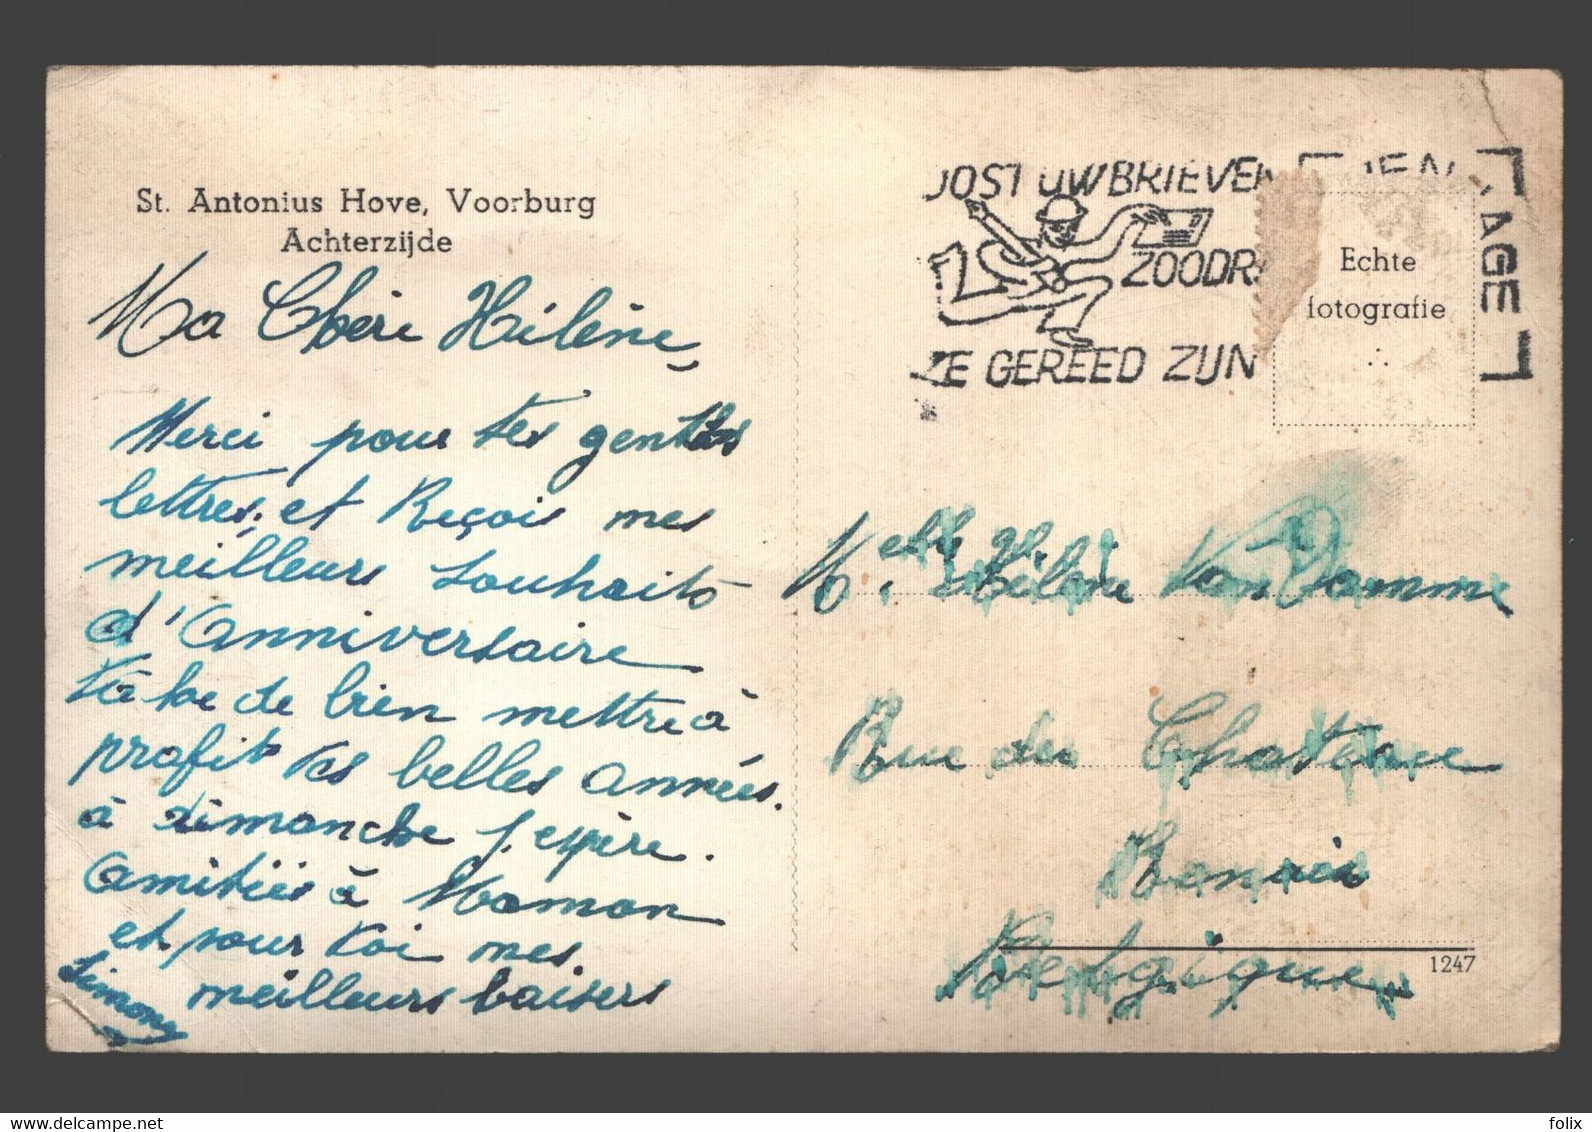 St. Antonius Hove, Voorburg
Achterzijde
Ma Chère Hélène,
Merci pour tes gentilles
lettres, et Reçois mes
meilleurs souhaits
d'Anniversaire
tâhe de bien mettre à
profit tes belles années.
à dimanche j'espère.
Amitiés à Maman
et pour toi mes
meilleurs baisers
Simone
POST UW BRIEVEN
ZOODRA
ZE GEREED ZIJN
AGE
Echte
fotografie
Melle Hélène Van Damme
Rue du Chateau
Renaix
Belgique
1247
www.delcampe.net
folix